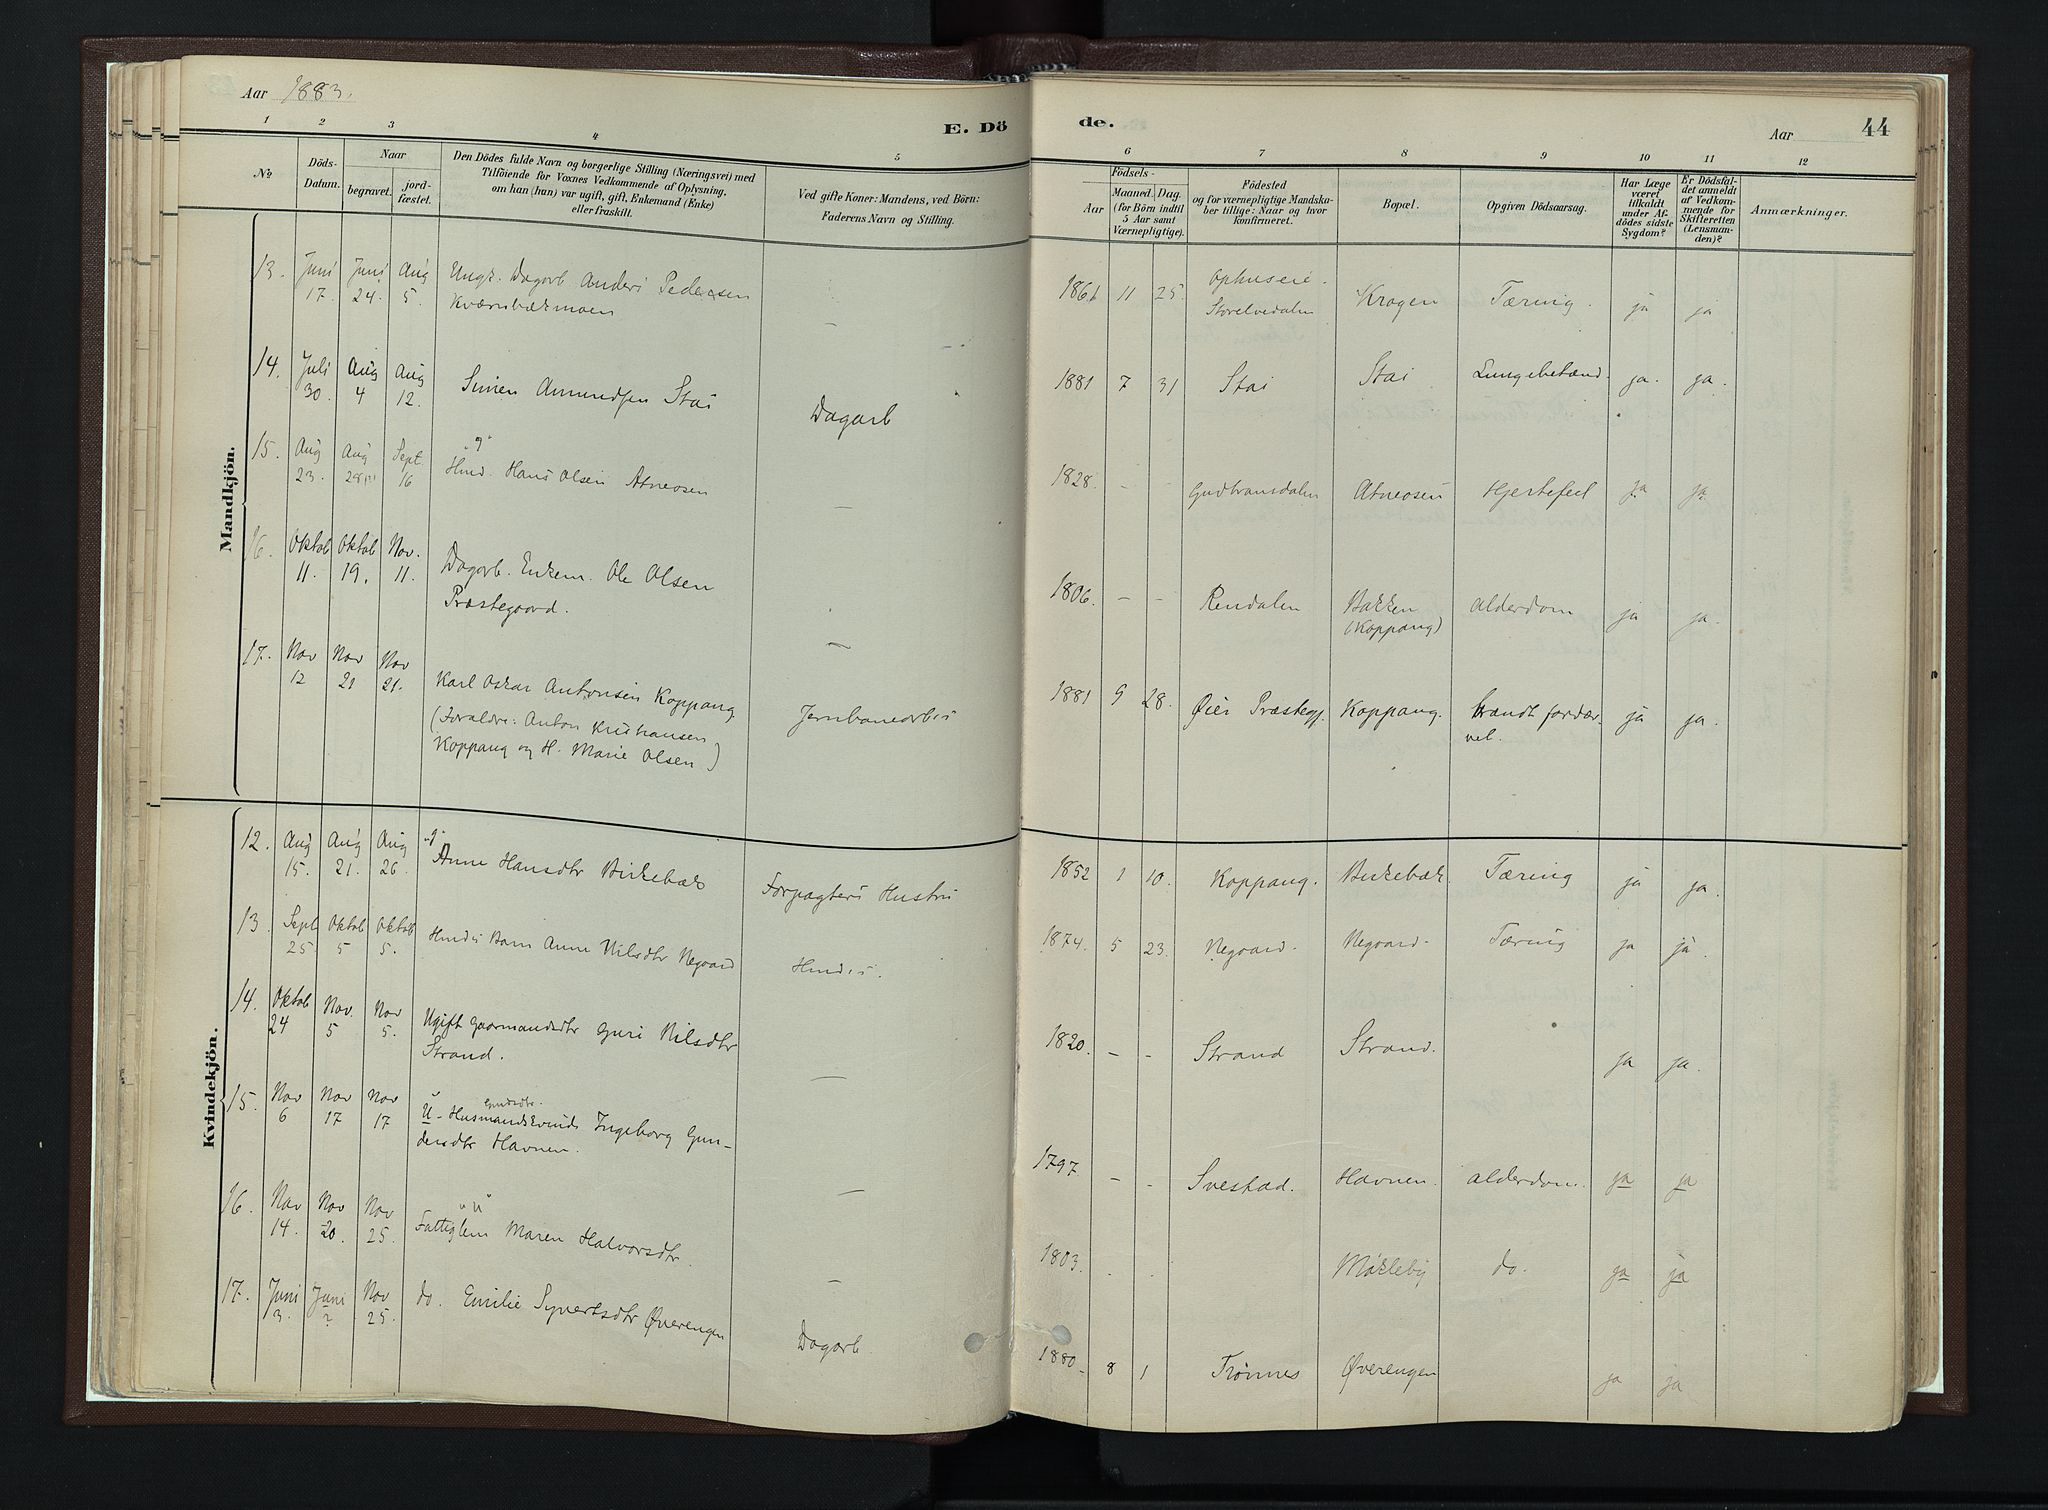 Aar 1883.
E. Dö
de.
Aar
44
1 2 3 4 5 6 7 8 9 10 11 12
No
Döds-Datum.
Naar
begravet.
jord-fæstet.
Den Dödes fulde Navn og borgerlige Stilling (Næringsvei) med
Tilföiende for Voxnes Vedkommende af Oplysning,
om han (hun) var ugift, gift, Enkemand (Enke)
eller fraskilt.
Ved gifte Koner: Mandens, ved Börn:
Faderens Navn og Stilling.
Födsels-
Aar
Maaned. Dag.
(for Börn indtil
5 Aar samt
Værnepligtige).
Födested
og for værnepligtige Mandska-
ber tillige: Naar og hvor
konfirmeret.
Bopæl.
Opgiven Dödsaarsag.
Har Læge
været
tilkaldt
under Af-
dödes sidste
Sygdom?
Er Dödsfal-
det anmeldt
af Vedkom-
mende for
Skifteretten
(Lensman-
den)?
Anmærkninger.
Mandkjön.
13. Juni 17. Juni 24. Aug 5. Ungk. Dagarb Anders Pedersen
Kværnbækmoen — 1861 11 25. Ophuseie. Storelvedalen Krogen Tæring. ja ja
14. Juli 30. Aug 4 Aug 12. Simen Amundsen Stai Dagarb 1881 7 31 Stai Stai Lungebetænd. ja. ja.
15. Aug 23. Aug Sept 16 "g"
Hmd. Hans Olsen Atneosen — 1828. - - Gudbransdalen Atneosen Hjertefeil ja ja
16. Oktob 11. Oktob 19. Nov. 11. Dagarb. Enkem. Ole Olsen
Præstegaard. — 1806. - - Rendalen Bakken (Koppang) alderdom ja ja.
17. Nov 12 Nov 21 Nov 21. Karl Oskar Antonsen Koppang
(Forældre: Anton Kristiansen
Koppang og H. Marie Olsen) 1881 9 28. Øier Præstegj. Koppang. brændt fordær-
vet. ja ja.
Kvindekjön.
12. Aug 15. Aug 21. Aug 26. "g"
Anne Hansdtr Birkebæk Forpagters Hustru 1852 1 10. Koppang. Birkebæk. Tæring ja ja.
13. Sept 25 Oktob 5 Oktob 5. Hmds Barn Anne Nilsdtr Negaard Hmds. 1874. 5 23. Negaard. Negaard. Tæring ja ja.
14. Oktob 24 Nov. 5 Nov 5. Ugift Gaarmandsdtr Guri Nilsdtr
Strand. — 1820. - - Strand Strand. ja ja.
15. Nov 6 Nov 17 Nov 17 U- Husmandskvinde Ingeborg Gun-
dersdtr Havnen. — 1797 - - Svestad. Havnen. alderdom. ja ja
16. Nov 14. Nov 20. Nov 25. "u"
Fattiglem Maren Halvorsdtr. — 1803. Møkleby do. ja ja
17. Juni 3. Juni ? Nov 25. do. Emilie Syvertsdtr Øverengen Dagarb. 1880 8 1 Trönnes Øverengen ja ja